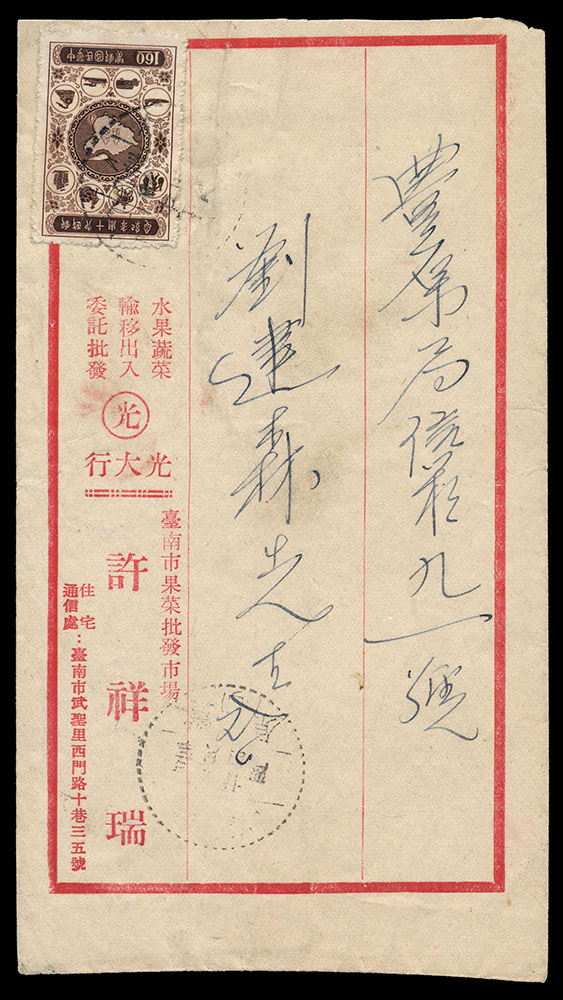 豐原局信箱九一號
劉建森先生
水果蔬菜
輸移出入
委託批發
光
光大行
臺南市果菜批發市場
許祥瑞
住宅
通信處：臺南市武聖里西門路十巷三五號
中華民國郵票
160
郵政六十周年紀念